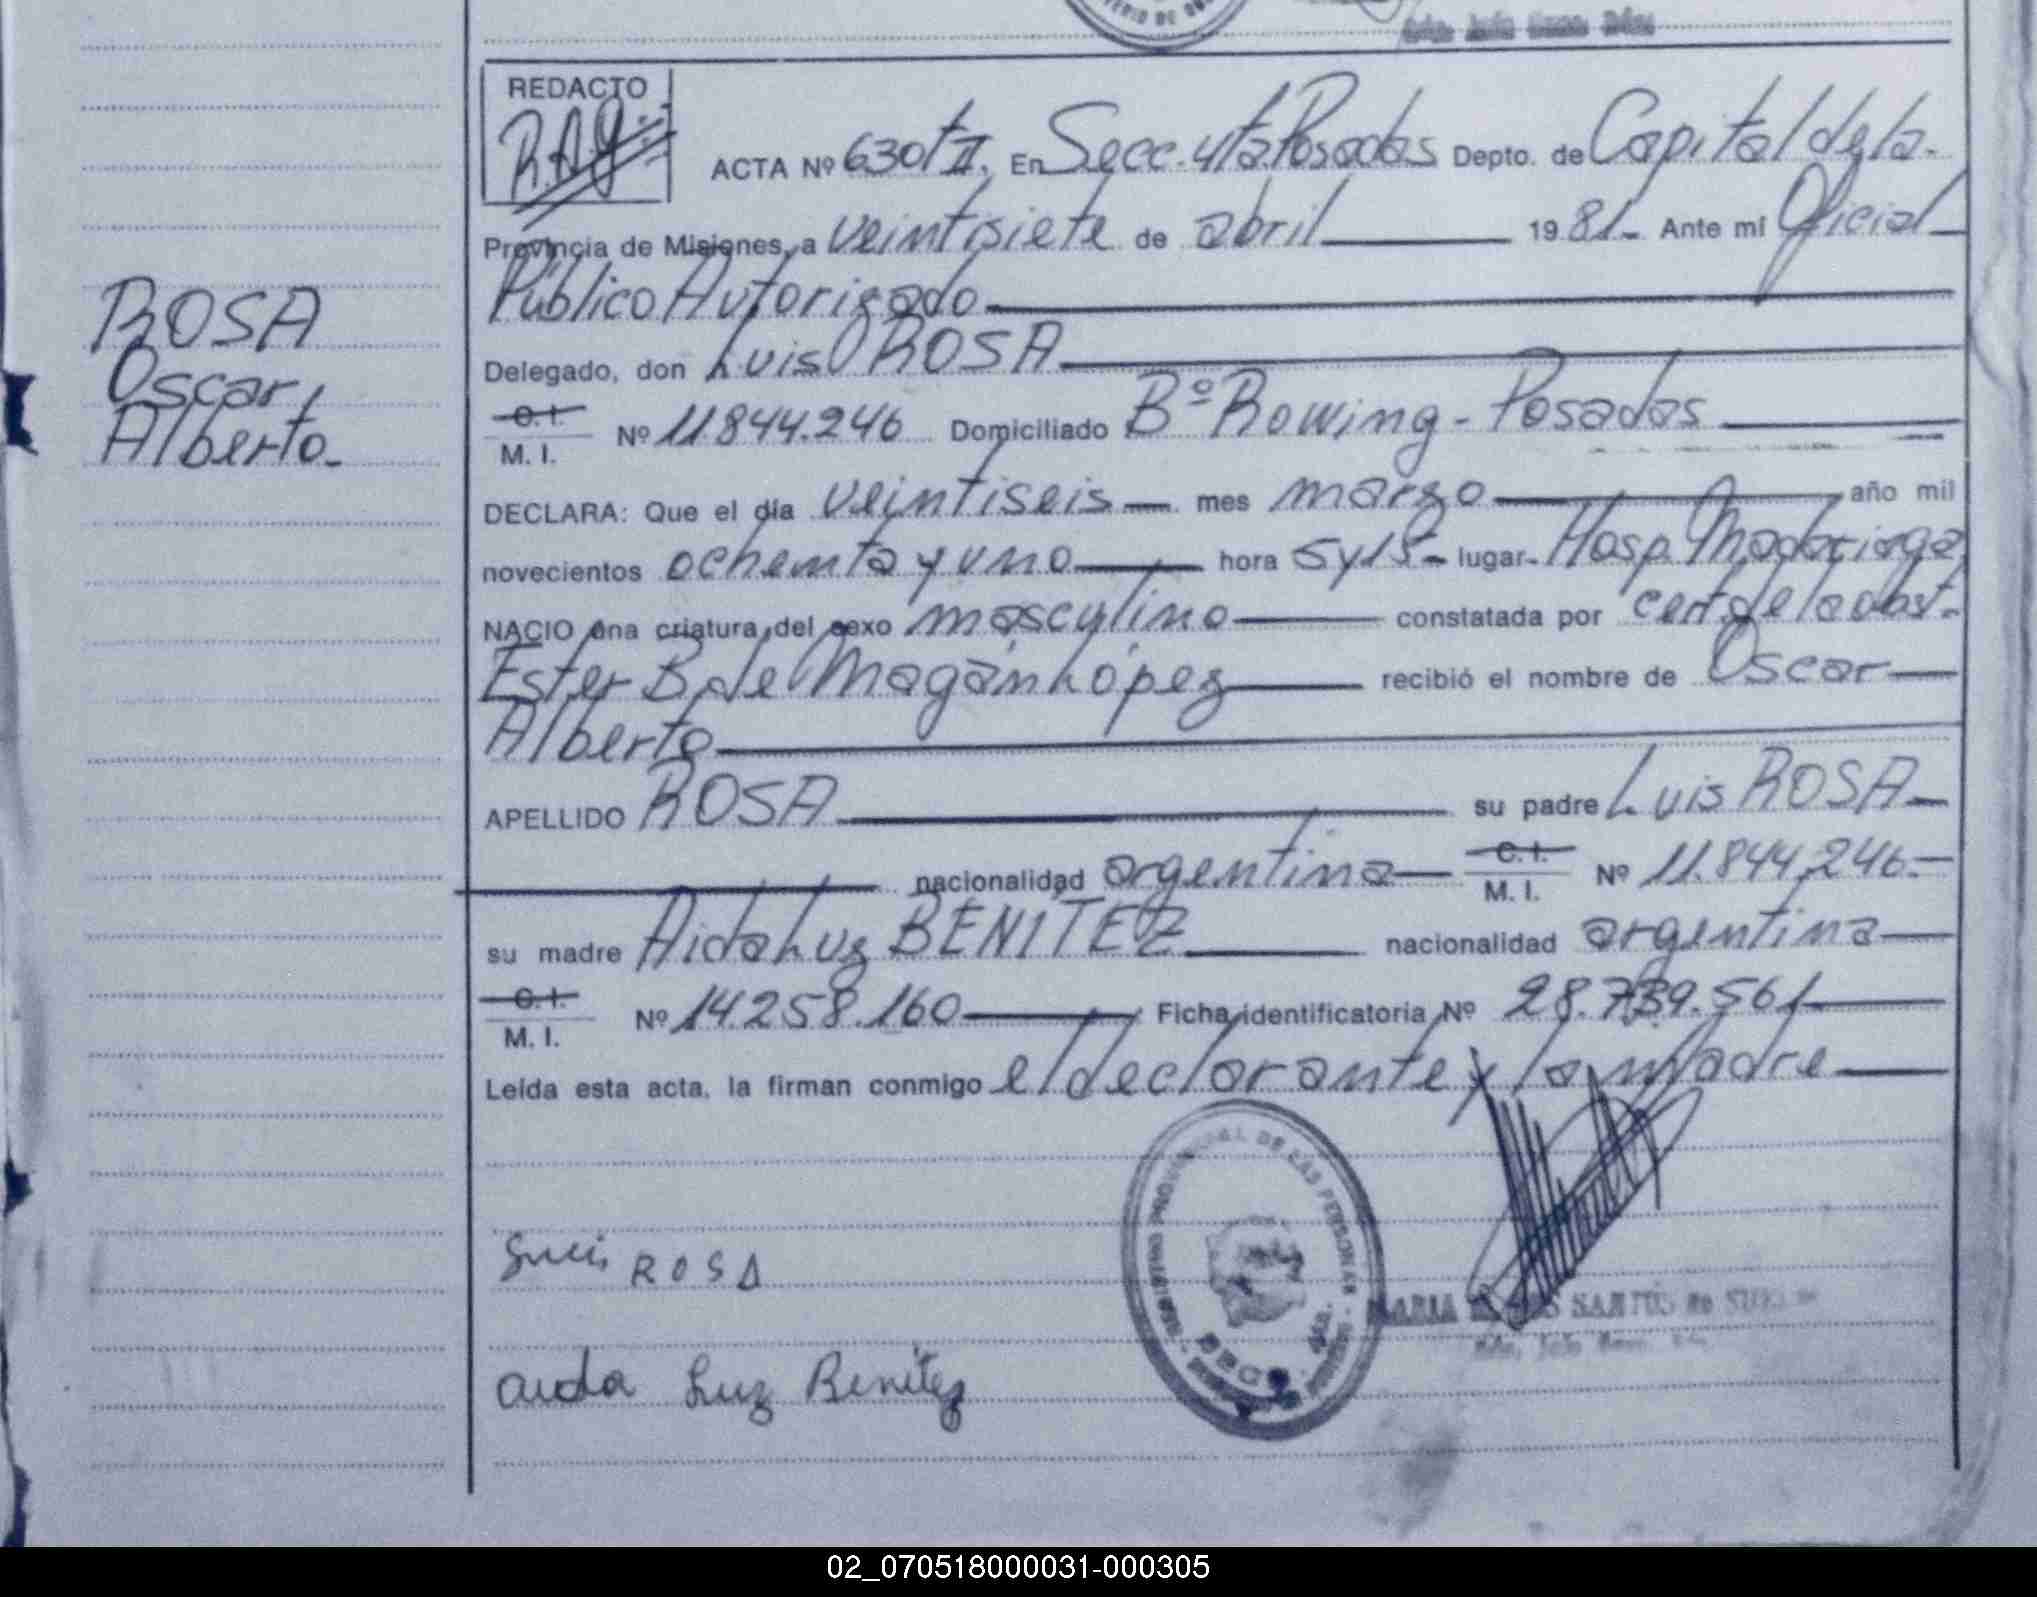 REDACTO
R.A.G.
ACTA Nº 630 T II. En Secc. 4ta Posadas Depto. de Capital de la
Provincia de Misiones, a veintisiete de abril 1981 Ante mi Oficial
Público Autorizado
Delegado, don Luis ROSA
C. I.
M. I. Nº 11.844.246 Domiciliado Bº Rowing - Posadas
DECLARA: Que el día veintiseis mes marzo año mil
novecientos ochenta y uno hora 5 y 15 lugar Hosp. Madariaga
NACIO una criatura del sexo masculino constatada por cert. de la obst.
Ester B. de Magán López recibió el nombre de Oscar
Alberto
APELLIDO ROSA su padre Luis ROSA
nacionalidad argentina C. I. M. I. Nº 11.844.246.
su madre Aida Luz BENITEZ nacionalidad argentina
C. I.
M. I. Nº 14.258.160 Ficha identificatoria Nº 28.739.561
Leída esta acta, la firman conmigo el declarante y la madre
ROSA
Oscar,
Alberto.
Luis ROSA
aida Luz Benitez
PROVINCIAL DE LAS PERSONAS
MARIA SANTOS de
02_070518000031-000305